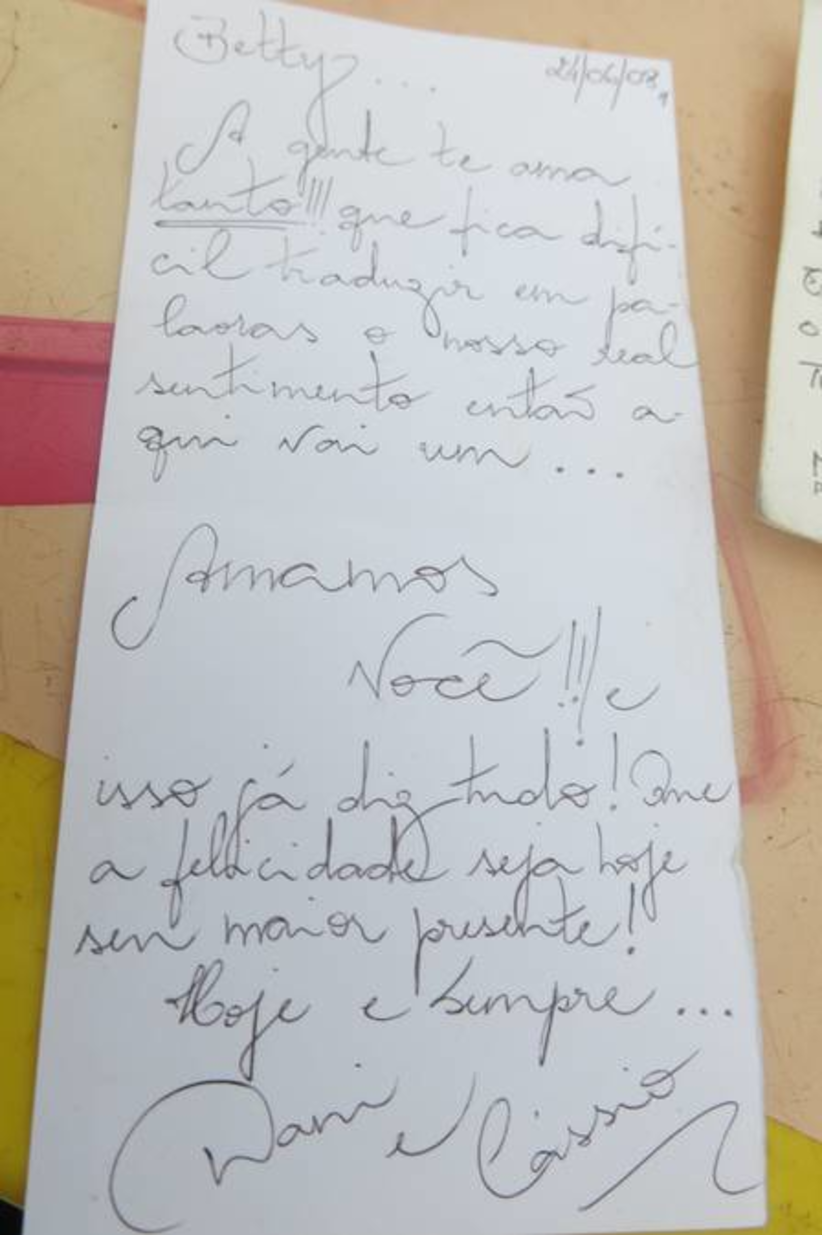 Betty...
24/04/08,
A gente te ama
tanto!!! que fica difí-
cil traduzir em pa-
lavras o nosso real
sentimento então a-
qui vai um...
Amamos
Você!!! e
isso já diz tudo! Que
a felicidade seja hoje
seu maior presente!
Hoje e Sempre...
Dani e Cássio